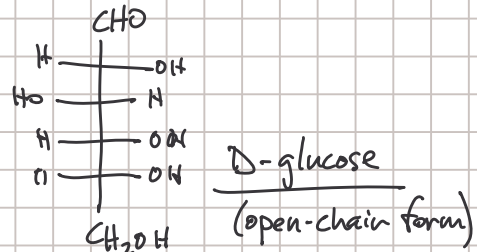 CHO
H OH
HO H
H OH
H OH
CH₂OH
D-glucose
(open-chain form)